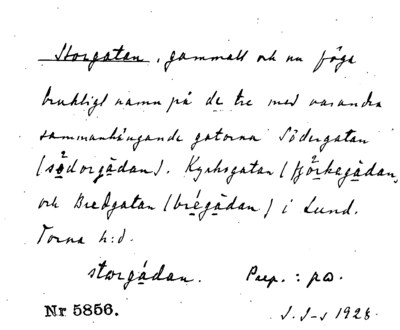 Storgatan, gammalt och nu föga
brukligt namn på de tre med varandra
sammanhängande gatorna Södergatan
(södorgådan). Kyrkogatan (tjörkegådan)
och Bredgatan (brégådan) i Lund.
Torna h:d.
storgådan. Prep. : på.
Nr 5856. 1928.